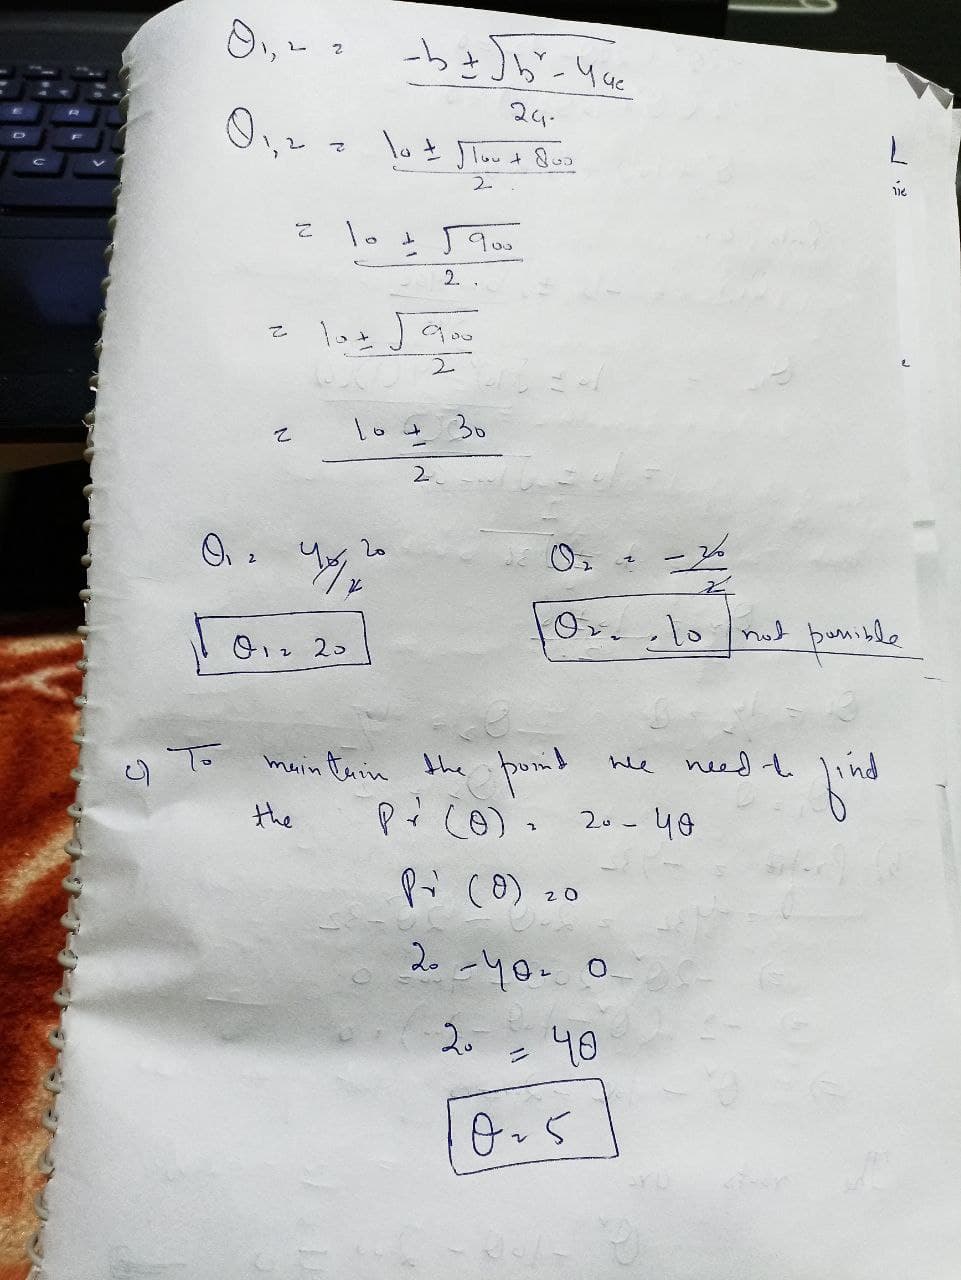 Q₁,₂ = -b ± √b² - 4ac / 2a.
Q₁,₂ = 10 ± √100 + 800 / 2.
= 10 ± √900 / 2.
= 10 ± √900 / 2
= 10 ± 30 / 2
Q₁ = 40/2 20 Q₂ = -20/2
Q₁ = 20 Q₂ = -10 not possible
c) To maintain the point we need to find
the Pi'(Q) = 20 - 4Q
Pi'(Q) = 0
20 - 4Q = 0
20 = 4Q
Q = 5